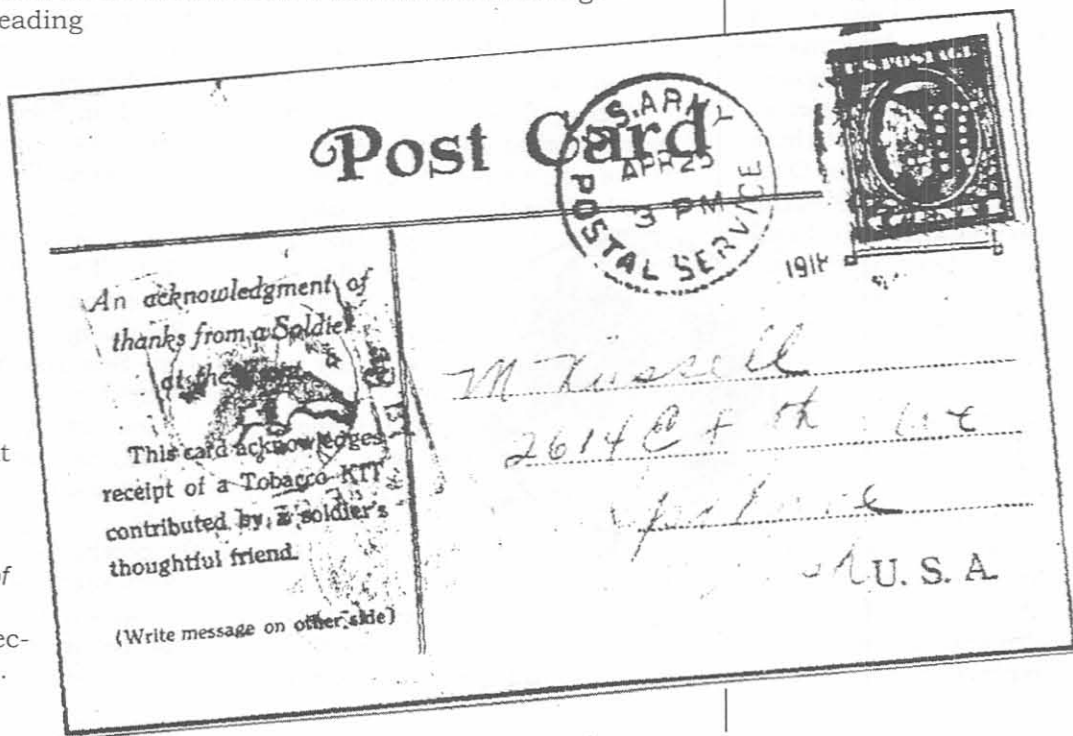 eading
Post Card
U.S. ARMY
APR 25
3 PM
POSTAL SERVICE
U.S. POSTAGE
191
An acknowledgment of
thanks from a Soldier
at the
This card acknowledges
receipt of a Tobacco KIT
contributed by a soldier's
thoughtful friend.
(Write message on other side)
M Russell
2614 E
U. S. A.
t
of
ec-
.